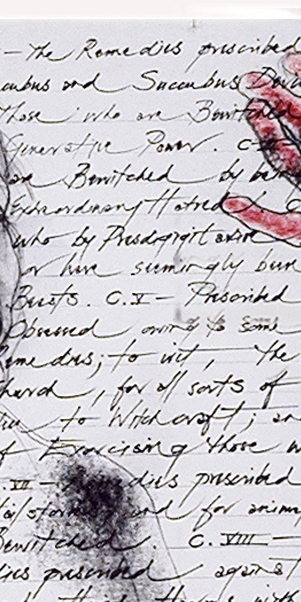 — The Remedies prescribed
Succubus and
Those who are Bewitched
Generative Power. C.
are Bewitched by being
Extraordinary Hatred C
who by Presdigigit
or have seemingly been
Beasts. C.V — Prescribed
Obsessed owing to some
Remedies; to wit, the
Church, for all sorts of
to Witchcraft; an
of Exorcising those w
VII — dies prescribed
and for anim
Bewitched. C. VIII —
dies prescribed against